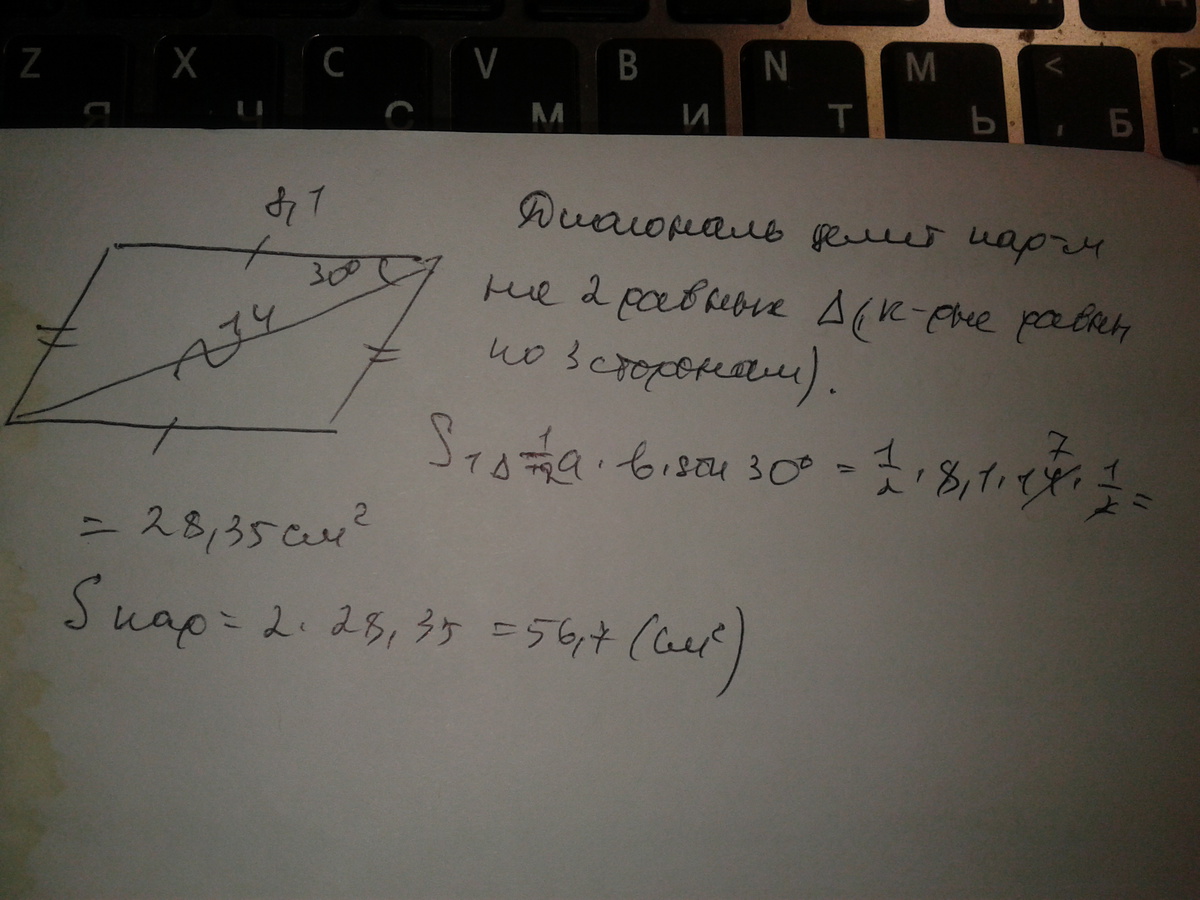 Z X C V B N M < >
Я Ч С М И Т Ь , Б
8,1
30°
14
Диагональ делит пар-м
на 2 равных Δ(к-рые равны
по 3 сторонам).
S1Δ = 1/2 a · b · sin 30° = 1/2 · 8,1 · 14 · 1/2 =
7
= 28,35 см²
S пар = 2 · 28,35 = 56,7 (см²)